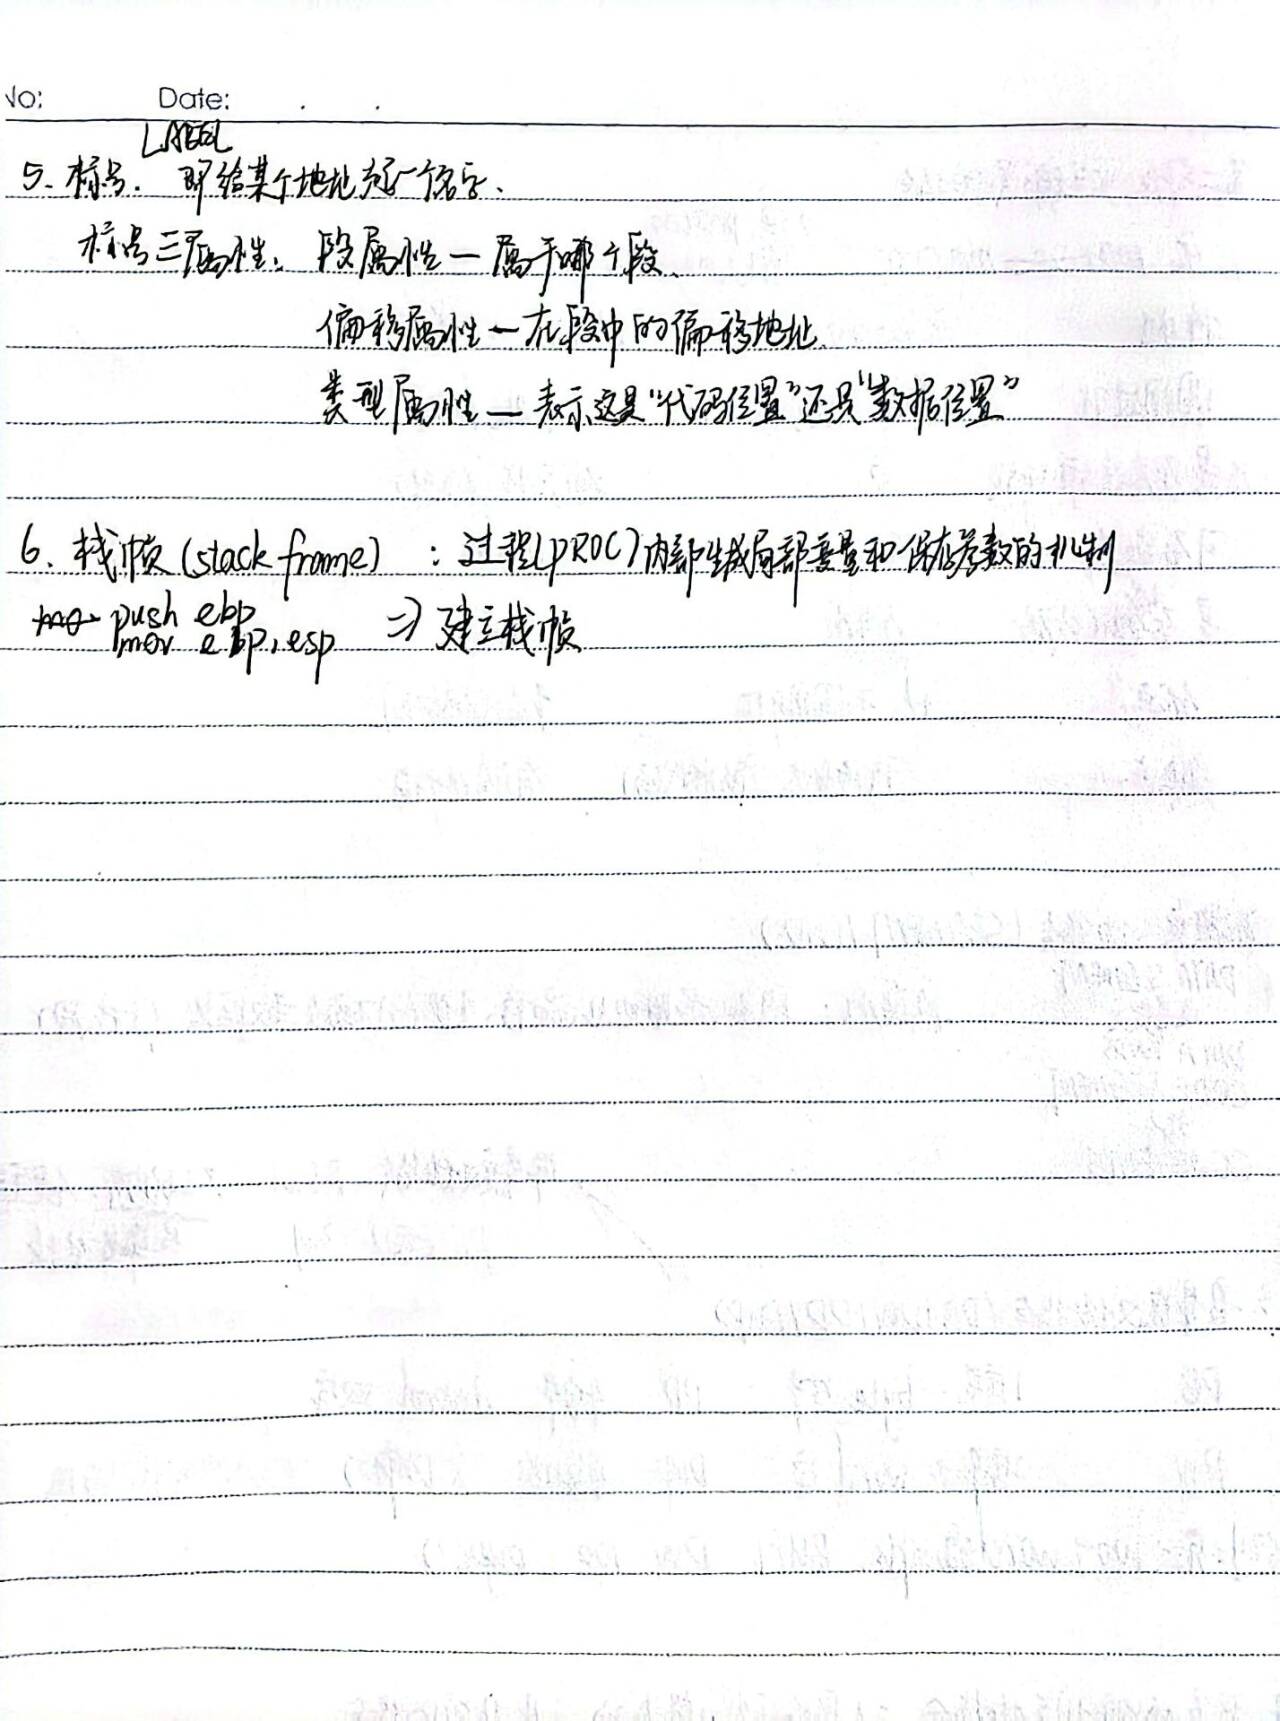 No: Date: . .
LABEL
5. 标号. 即给某个地址起一个名字.
标号三属性: 段属性一属于哪个段.
偏移属性一在段中的偏移地址.
类型属性一表示这是“代码位置”还是“数据位置”
6. 栈帧(stack frame) : 过程(PROC)内部生成局部变量和保存参数的机制
push ebp
mov ebp, esp ⇒ 建立栈帧